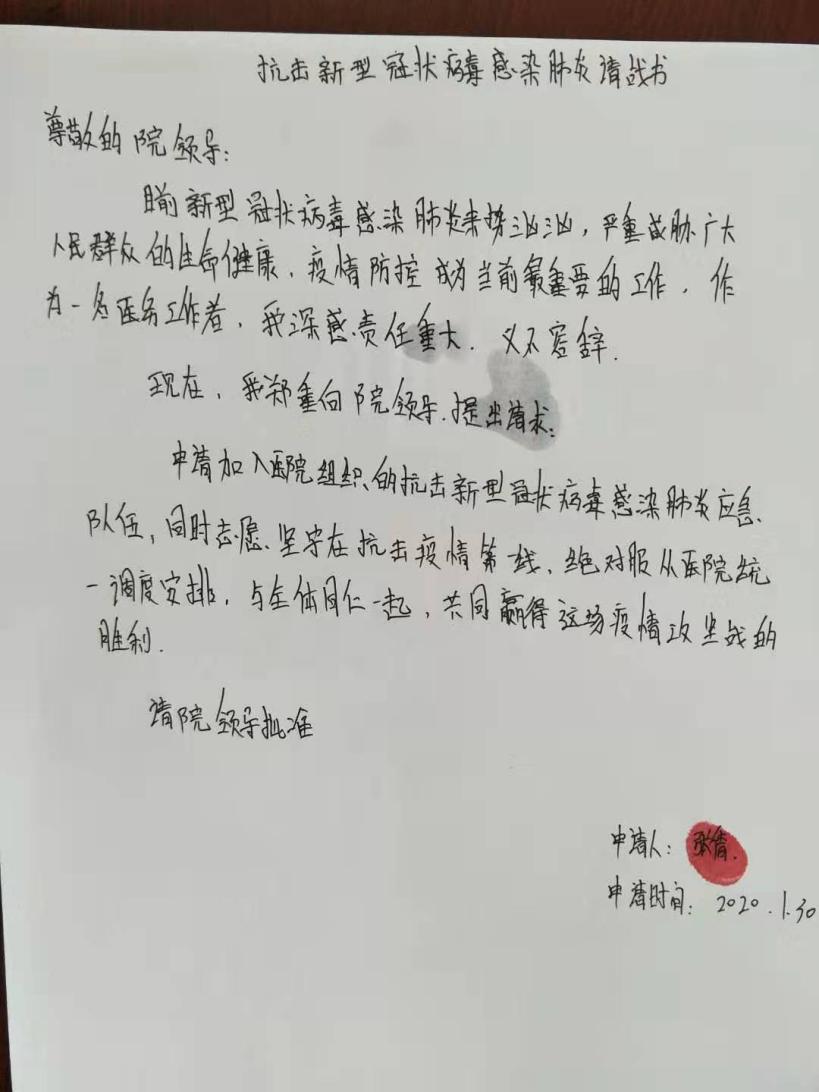 抗击新型冠状病毒感染肺炎请战书
尊敬的院领导:
目前新型冠状病毒感染肺炎来势汹汹,严重威胁广大
人民群众的生命健康,疫情防控成为当前最重要的工作,作
为一名医务工作者,我深感责任重大,义不容辞.
现在,我郑重向院领导提出请求:
申请加入医院组织的抗击新型冠状病毒感染肺炎应急
队伍,同时志愿坚守在抗击疫情第一线,绝对服从医院统
一调度安排,与全体同仁一起,共同赢得这场疫情攻坚战的
胜利.
请院领导批准
申请人:张倩.
申请时间:2020.1.30